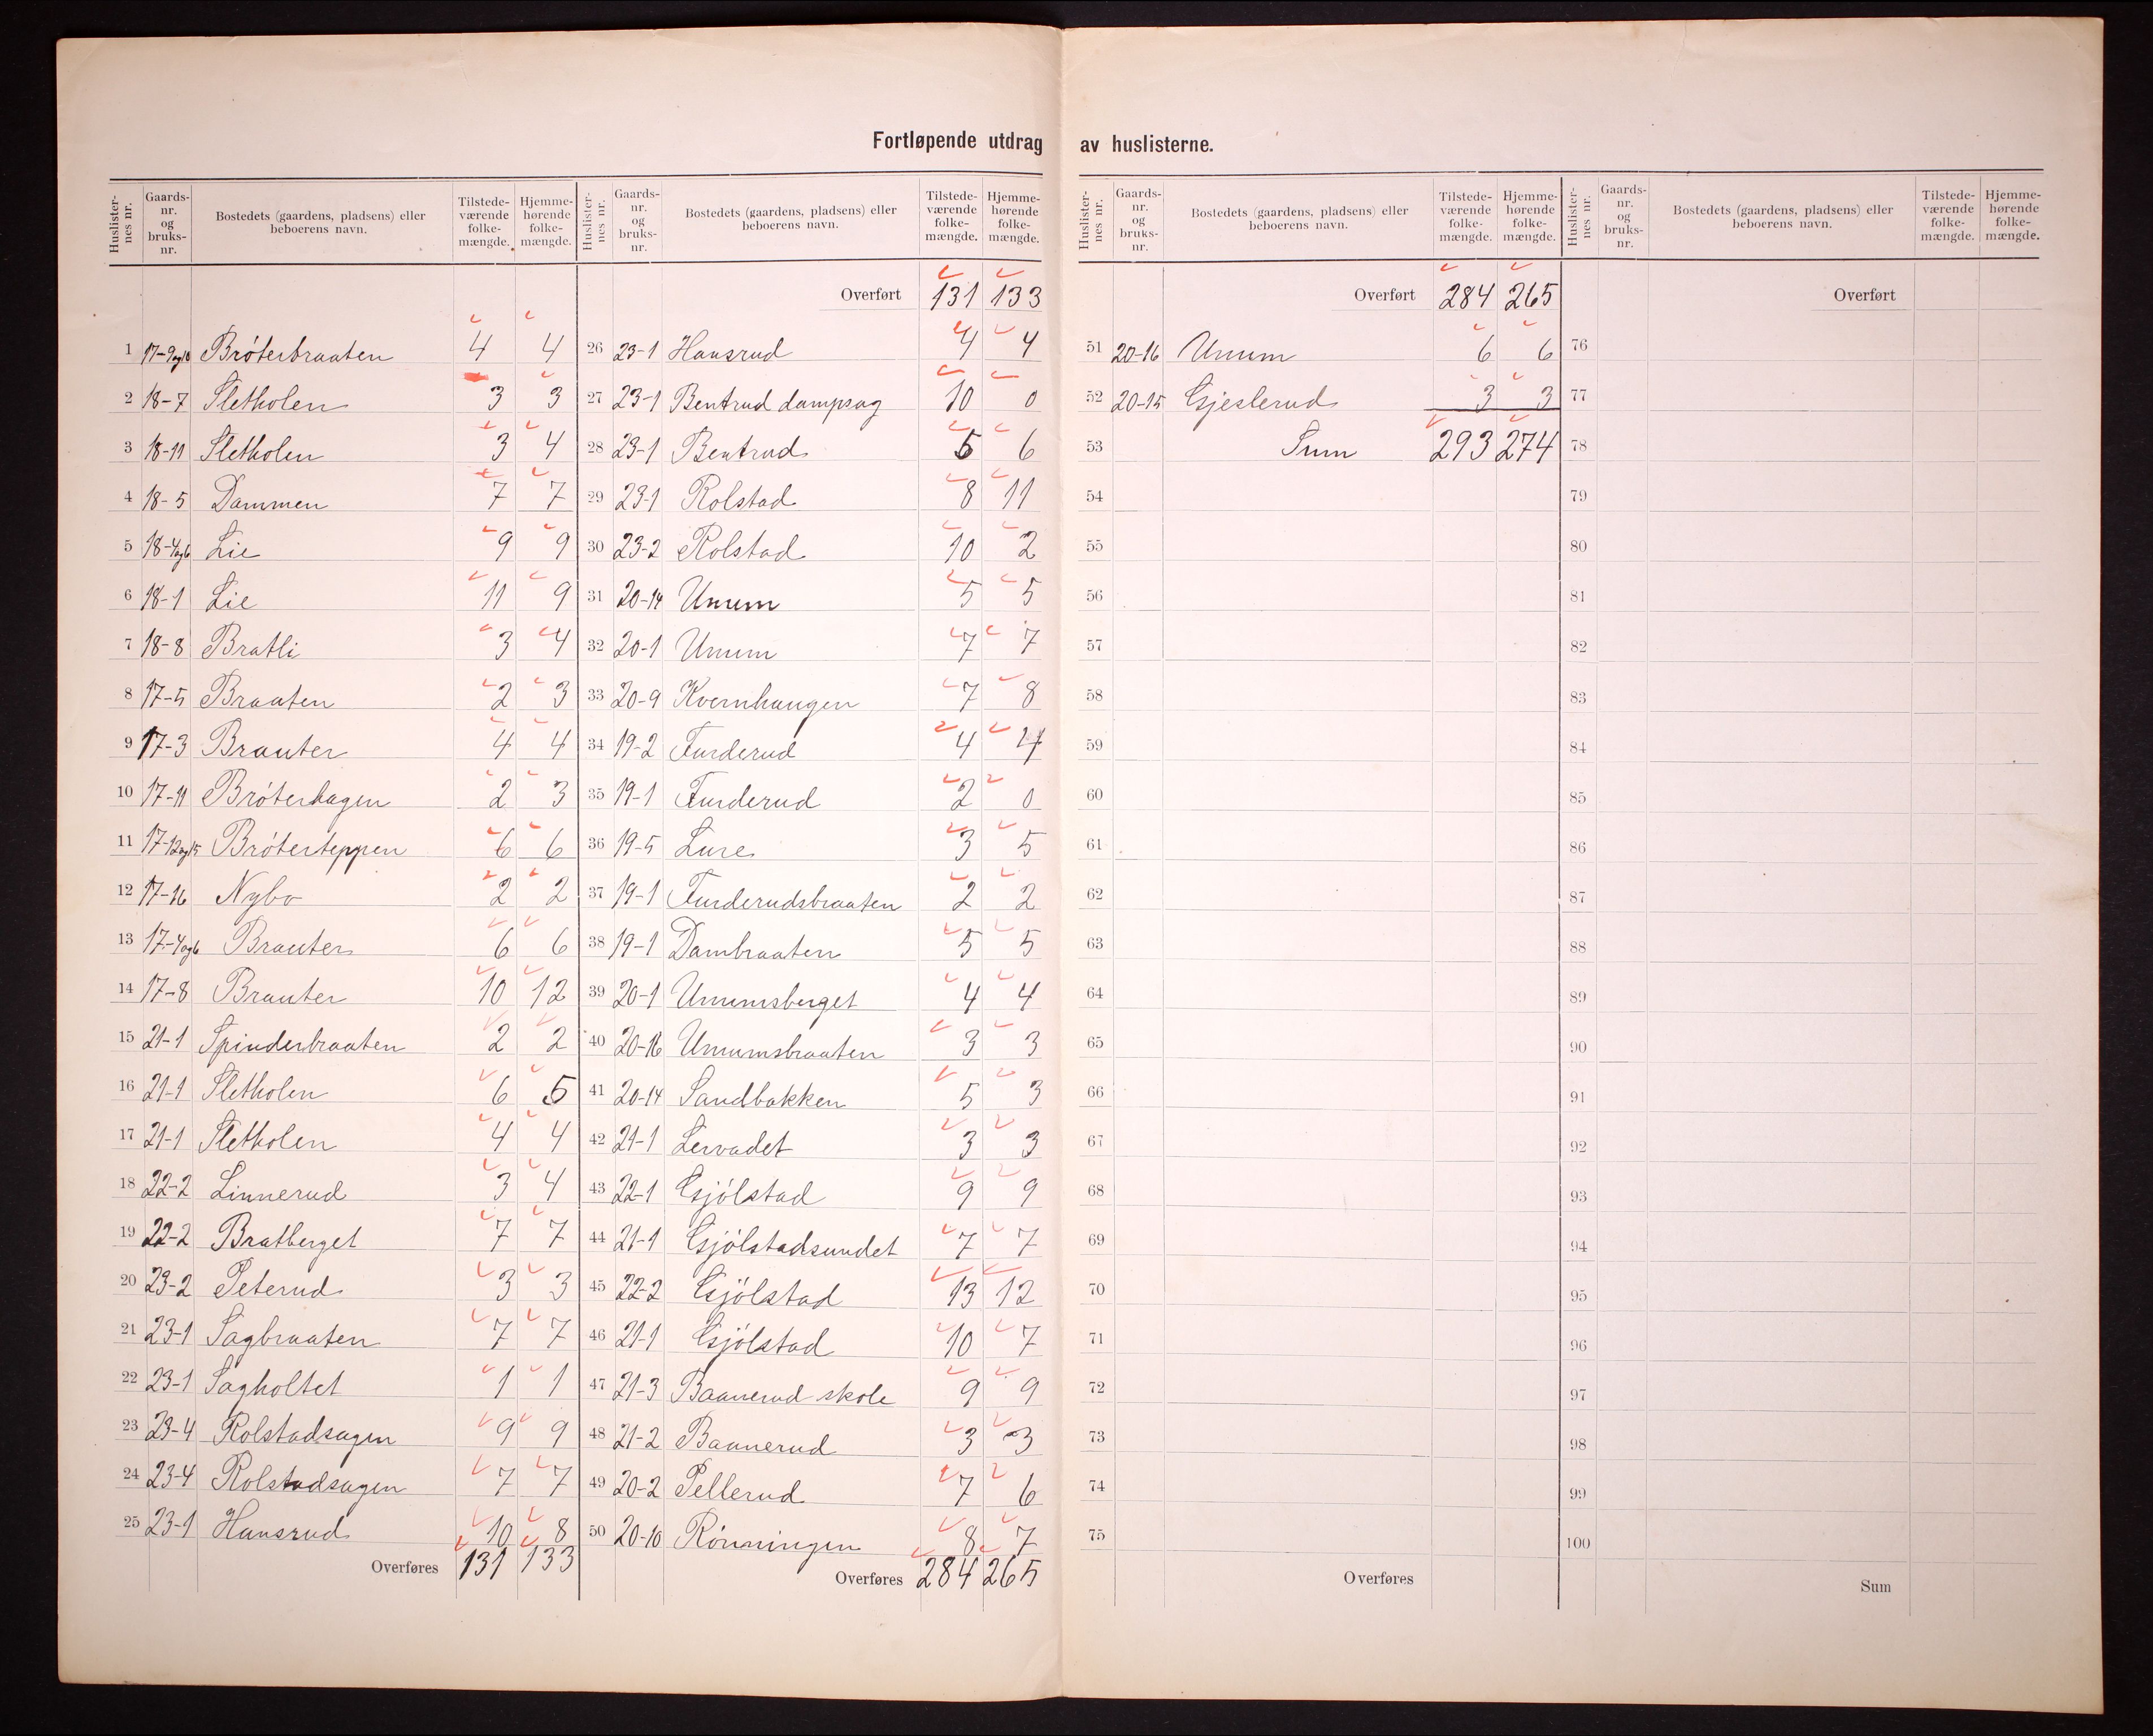 Fortløpende utdrag av huslisterne.
Huslister-nes nr. | Gaards-nr. og bruks-nr. | Bostedets (gaardens, pladsens) eller beboerens navn. | Tilstede-værende folke-mængde. | Hjemme-hørende folke-mængde.
1 17-9og10 Bróterbraaten 4 4
2 18-7 Sletholen 3 3
3 18-11 Sletholen 3 4
4 18-5 Dammen 7 7
5 18-4og6 Lie 9 9
6 18-1 Lie 11 9
7 18-8 Bratli 3 4
8 17-5 Braaten 2 3
9 17-3 Brauter 4 4
10 17-11 Bróterhagen 2 3
11 17-12og15 Bróterteppen 6 6
12 17-16 Nybo 2 2
13 17-4og6 Brauter 6 6
14 17-8 Brauter 10 12
15 21-1 Spinderbraaten 2 2
16 21-1 Sletholen 6 5
17 21-1 Sletholen 4 4
18 22-2 Linnerud 3 4
19 22-2 Bratberget 7 7
20 23-2 Peterud 3 3
21 23-1 Sagbraaten 7 7
22 23-1 Sagholtet 1 1
23 23-4 Rolstadsagen 9 9
24 23-4 Rolstadsagen 7 7
25 23-1 Hansrud 10 8
Overføres 131 133
Huslister-nes nr. | Gaards-nr. og bruks-nr. | Bostedets (gaardens, pladsens) eller beboerens navn. | Tilstede-værende folke-mængde. | Hjemme-hørende folke-mængde.
Overført 131 133
26 23-1 Hansrud 4 4
27 23-1 Bentrud dampsag 10 0
28 23-1 Bentrud 5 6
29 23-1 Rolstad 8 11
30 23-2 Rolstad 10 2
31 20-14 Unum 5 5
32 20-1 Unum 7 7
33 20-9 Kvernhaugen 7 8
34 19-2 Furderud 4 4
35 19-1 Furderud 2 0
36 19-5 Lure 3 5
37 19-1 Furderudsbraaten 2 2
38 19-1 Dambraaten 5 5
39 20-1 Unumsberget 4 4
40 20-16 Unumsbraaten 3 3
41 20-14 Sandbakken 5 3
42 21-1 Lervadet 3 3
43 22-1 Gjólstad 9 9
44 21-1 Gjólstadsundet 7 7
45 22-2 Gjólstad 13 12
46 21-1 Gjólstad 10 7
47 21-3 Baanerud skole 9 9
48 21-2 Baanerud 3 3
49 20-2 Pellerud 7 6
50 20-10 Rónningen 8 7
Overføres 284 265
Huslister-nes nr. | Gaards-nr. og bruks-nr. | Bostedets (gaardens, pladsens) eller beboerens navn. | Tilstede-værende folke-mængde. | Hjemme-hørende folke-mængde.
Overført 284 265
51 20-16 Unum 6 6
52 20-15 Gjeslerud 3 3
53 Sum 293 274
54
55
56
57
58
59
60
61
62
63
64
65
66
67
68
69
70
71
72
73
74
75
Overføres
Huslister-nes nr. | Gaards-nr. og bruks-nr. | Bostedets (gaardens, pladsens) eller beboerens navn. | Tilstede-værende folke-mængde. | Hjemme-hørende folke-mængde.
Overført
76
77
78
79
80
81
82
83
84
85
86
87
88
89
90
91
92
93
94
95
96
97
98
99
100
Sum